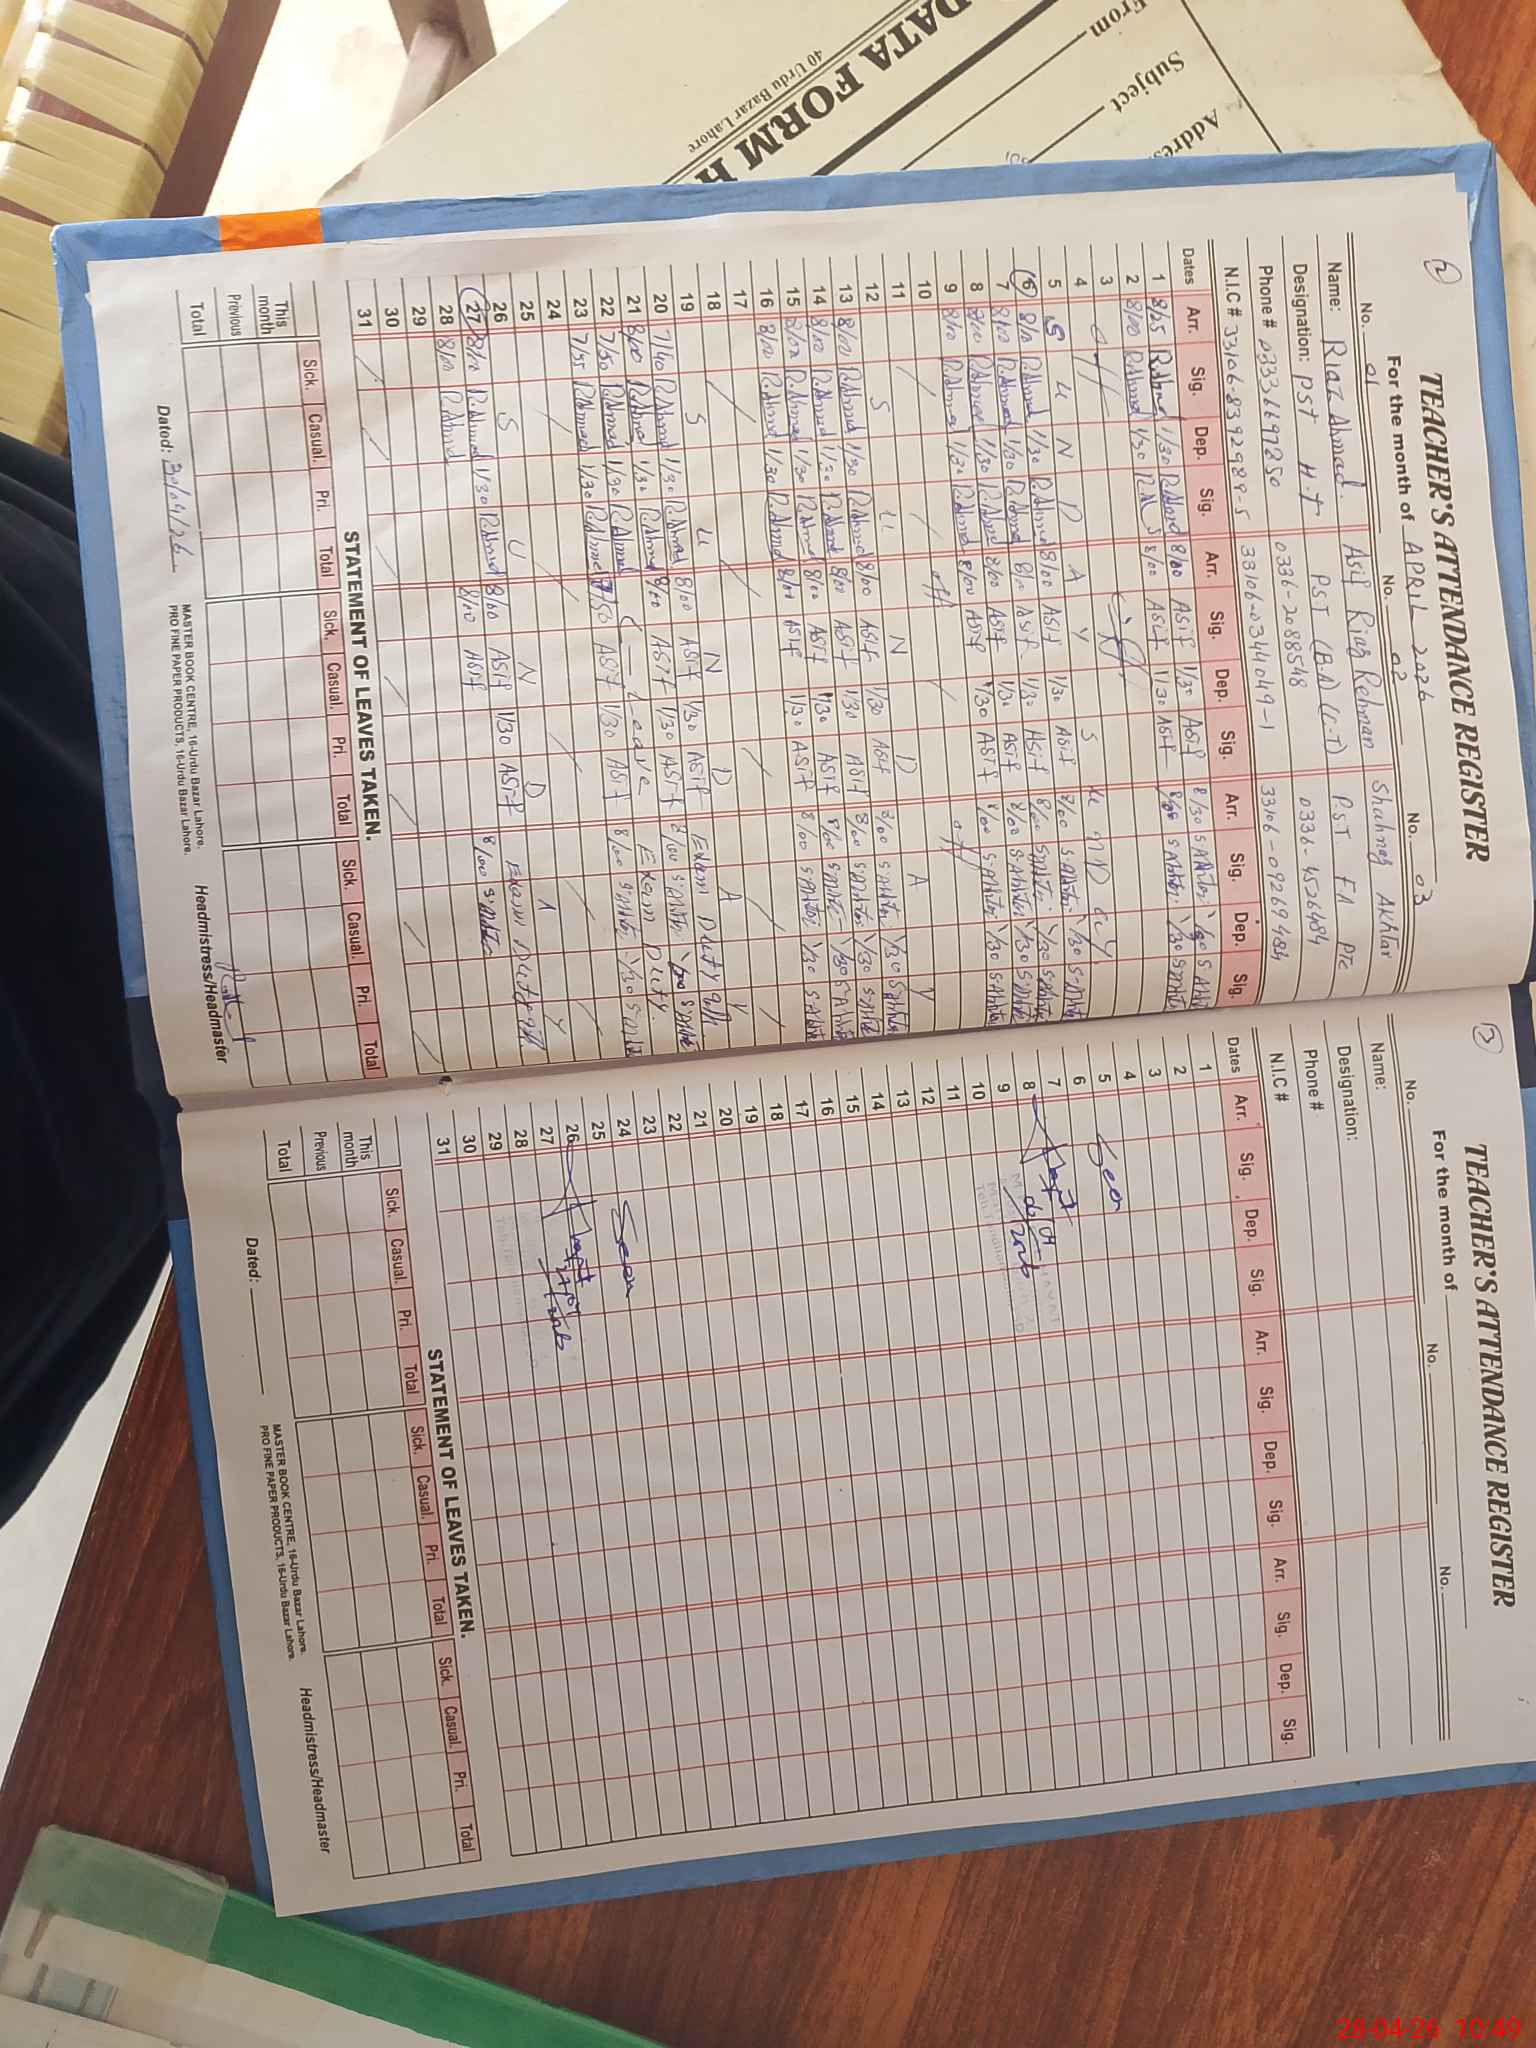 DATA FORM H
40 Urdu Bazar Lahore
From
Subject
Addres
2
TEACHER'S ATTENDANCE REGISTER
For the month of APRIL 2026
No. 01 No. 02 No. 03
Name: Riaz Ahmad. Asif Riaz Rehman Shahnaz Akhtar
Designation: PST H.T PST (B.A) (C-T) P.S.T FA PTC
Phone # 03336697250 0336-2088548 0336-4526484
N.I.C # 33106-8392989-5 33106-0344049-1 33106-0926948
Dates Arr. Sig. Dep. Sig. Arr. Sig. Dep. Sig. Arr. Sig. Dep. Sig.
1 8/25 R.Ahmad 1/30 R.Ahmad 8/00 ASIF 1/30 ASIF 8/30 S.Akhtar 1/30 S.Akhtar
2 8/00 R.Ahmad 1/30 8/00 ASIF 1/30 ASIF 8/00 S.Akhtar 1/30 S.Akhtar
3
4
5 S U N D A Y S U N D A Y
6 8/00 R.Ahmad 1/30 R.Ahmad 8/00 ASIF 1/30 ASIF 8/00 S.Akhtar 1/30 S.Akhtar
7 8/00 R.Ahmad 1/30 R.Ahmad 8/00 ASIF 1/30 ASIF 8/00 S.Akhtar 1/30 S.Akhtar
8 8/00 R.Ahmad 1/30 R.Ahmad 8/00 ASIF 1/30 ASIF 8/00 S.Akhtar 1/30 S.Akhtar
9 8/00 R.Ahmad 1/30 R.Ahmad 8/00 ASIF 1/30 ASIF 8/00 S.Akhtar 1/30 S.Akhtar
10 off off
11
12 S U N D A Y
13 8/00 R.Ahmad 1/30 R.Ahmad 8/00 ASIF 1/30 ASIF 8/00 S.Akhtar 1/30 S.Akhtar
14 8/00 R.Ahmad 1/30 R.Ahmad 8/00 ASIF 1/30 ASIF 8/00 S.Akhtar 1/30 S.Akhtar
15 8/00 R.Ahmad 1/30 R.Ahmad 8/00 ASIF 1/30 ASIF 8/00 S.Akhtar 1/30 S.Akhtar
16 8/00 R.Ahmad 1/30 R.Ahmad 8/00 ASIF 1/30 ASIF 8/00 S.Akhtar 1/30 S.Akhtar
17
18
19 S U N D A Y
20 7/40 R.Ahmad 1/30 R.Ahmad 8/00 ASIF 1/30 ASIF Exam Duty
21 8/00 R.Ahmad 1/30 R.Ahmad 8/00 ASIF 1/30 ASIF 8/00 S.Akhtar S.Akhtar
22 7/50 R.Ahmad 1/30 R.Ahmad Leave Exam Duty.
23 7/55 R.Ahmad 1/30 R.Ahmad 7/50 ASIF 1/30 ASIF 8/00 S.Akhtar 1/30 S.Akhtar
24
25
26 S U N D A Y
27 8/00 R.Ahmad 1/30 R.Ahmad 8/00 ASIF 1/30 ASIF Exam Duty
28 8/00 R.Ahmad 8/00 ASIF 8/00 S.Akhtar
29
30
31
STATEMENT OF LEAVES TAKEN.
Sick. Casual. Pri. Total Sick. Casual. Pri. Total Sick. Casual. Pri. Total
This month
Previous
Total
Dated: 30/04/26
MASTER BOOK CENTRE, 16-Urdu Bazar Lahore.
PRO FINE PAPER PRODUCTS, 16-Urdu Bazar Lahore.
Headmistress/Headmaster
3
TEACHER'S ATTENDANCE REGISTER
For the month of
No. No. No.
Name:
Designation:
Phone #
N.I.C #
Dates Arr. Sig. Dep. Sig. Arr. Sig. Dep. Sig. Arr. Sig. Dep. Sig.
1
2
3
4
5 Seen
6
7
8 06/04/2026
9
10
11
12
13
14
15
16
17
18
19
20
21
22
23
24 Seen
25
26
27 27/04/2026
28
29
30
31
STATEMENT OF LEAVES TAKEN.
Sick. Casual. Pri. Total Sick. Casual. Pri. Total Sick. Casual. Pri. Total
This month
Previous
Total
Dated:
MASTER BOOK CENTRE, 16-Urdu Bazar Lahore.
PRO FINE PAPER PRODUCTS, 16-Urdu Bazar Lahore.
Headmistress/Headmaster
28-04-26 10:49